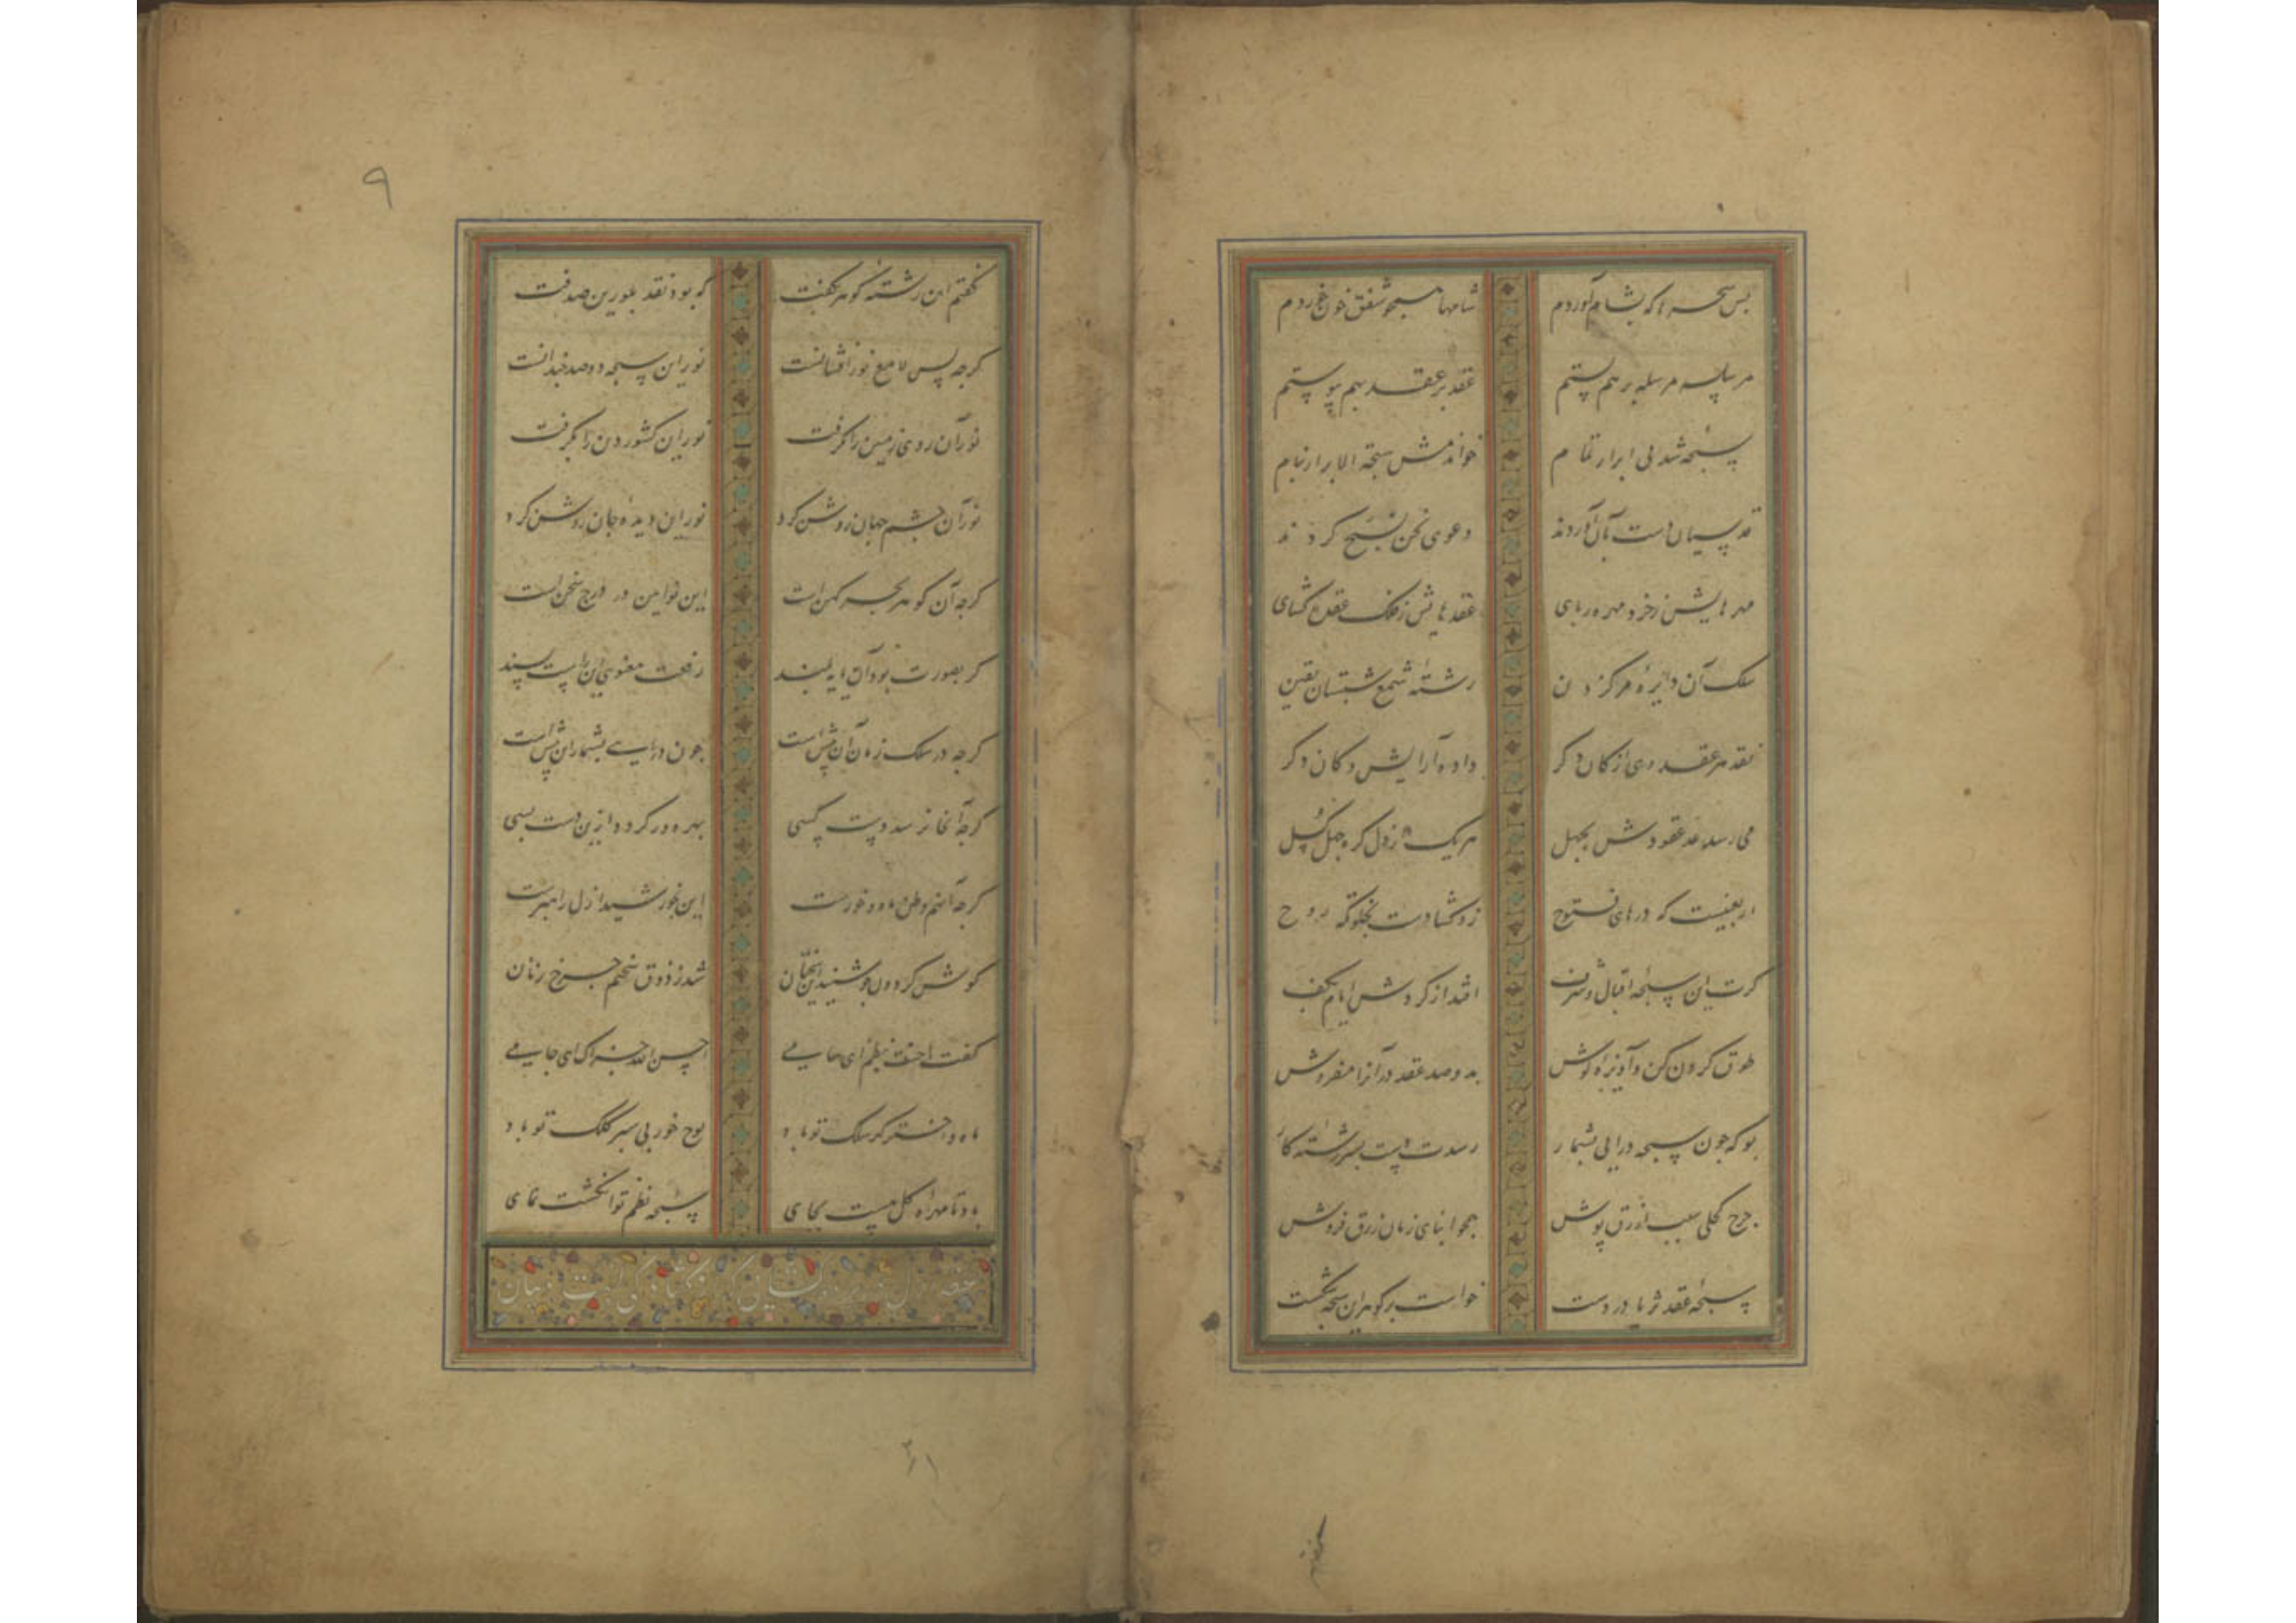 بس سحرها که بشام آوردم شامها همچو شفق خون خوردم
مرسله مرسله بر هم بستم عقد بر عقد بهم پیوستم
سبحه شد پی ابرار تمام خواندمش سبحة الابرار بنام
قدسیان دست بآن آوردند دعوی نحن نسبح کردند
مهرهایش ز خرد مهره ربای عقدهایش ز فلک عقده گشای
سلک آن دایره مرکز دین رشته شمع شبستان یقین
نقد هر عقد وی از کان دگر داده آرایش دکان دگر
می رسد عد عقودش بچهل هر یک از دل گره جهل گسل
اربعینیست که درهای فتوح زد گشادت بخلوتگه روح
گرت این سبحه اقبال و شرف افتد از گردش ایام بکف
طوق گردن کن و آویزه گوش به دو صد عقد در آنرا مفروش
بو که چون سبحه درآیی بشمار رسدت دست بسررشته کار
چرخ کحلی سلب ازرق پوش همچو ابنای زمان زرق فروش
سبحه عقد ثریا در دست خواست بر گوهر این سبحه شکست
۹
گفتم این رشته گوهر بکفت که بود نقد بلورین صدفت
گرچه پس لامع نور افشانست نور این سبحه دو صد چندانست
نور آن روی زمین را گرفت نور این کشور دین را بگرفت
نور آن چشم جهان روشن کرد نور این دیده جان روشن کرد
گرچه آن گوهر بحر کهن است این نو آیین در درج سخن است
گر بصورت بود آن پایه بلند رفعت معنوی این راست پسند
گرچه در سلک زمان آن پیش است چون درآیی بشمار این بیش است
گرچه آنجا نرسد دست کسی بهره ور گردد ازین دست بسی
گرچه آنهم وطن ماه و خورست این بخورشید ازل راهبرست
گوش گردون چو شنید این سخنان شد ز ذوق سخنم چرخ زنان
گفت احسنت نظم ای جامی احسن الله جزاک ای جامی
ماه و اختر گر سلک تو باد لوح خور پی سپر کلک تو باد
باد تا مهره گل هست بجای سبحه نظم تو انگشت نمای